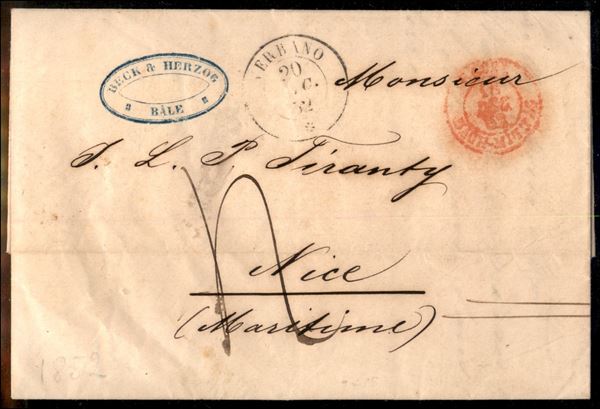 BECK & HERZOG
BÂLE
VERBANO
20
C.
52
Monsieur
J. L. P. Tiranty
Nice
(Maritime)
1852